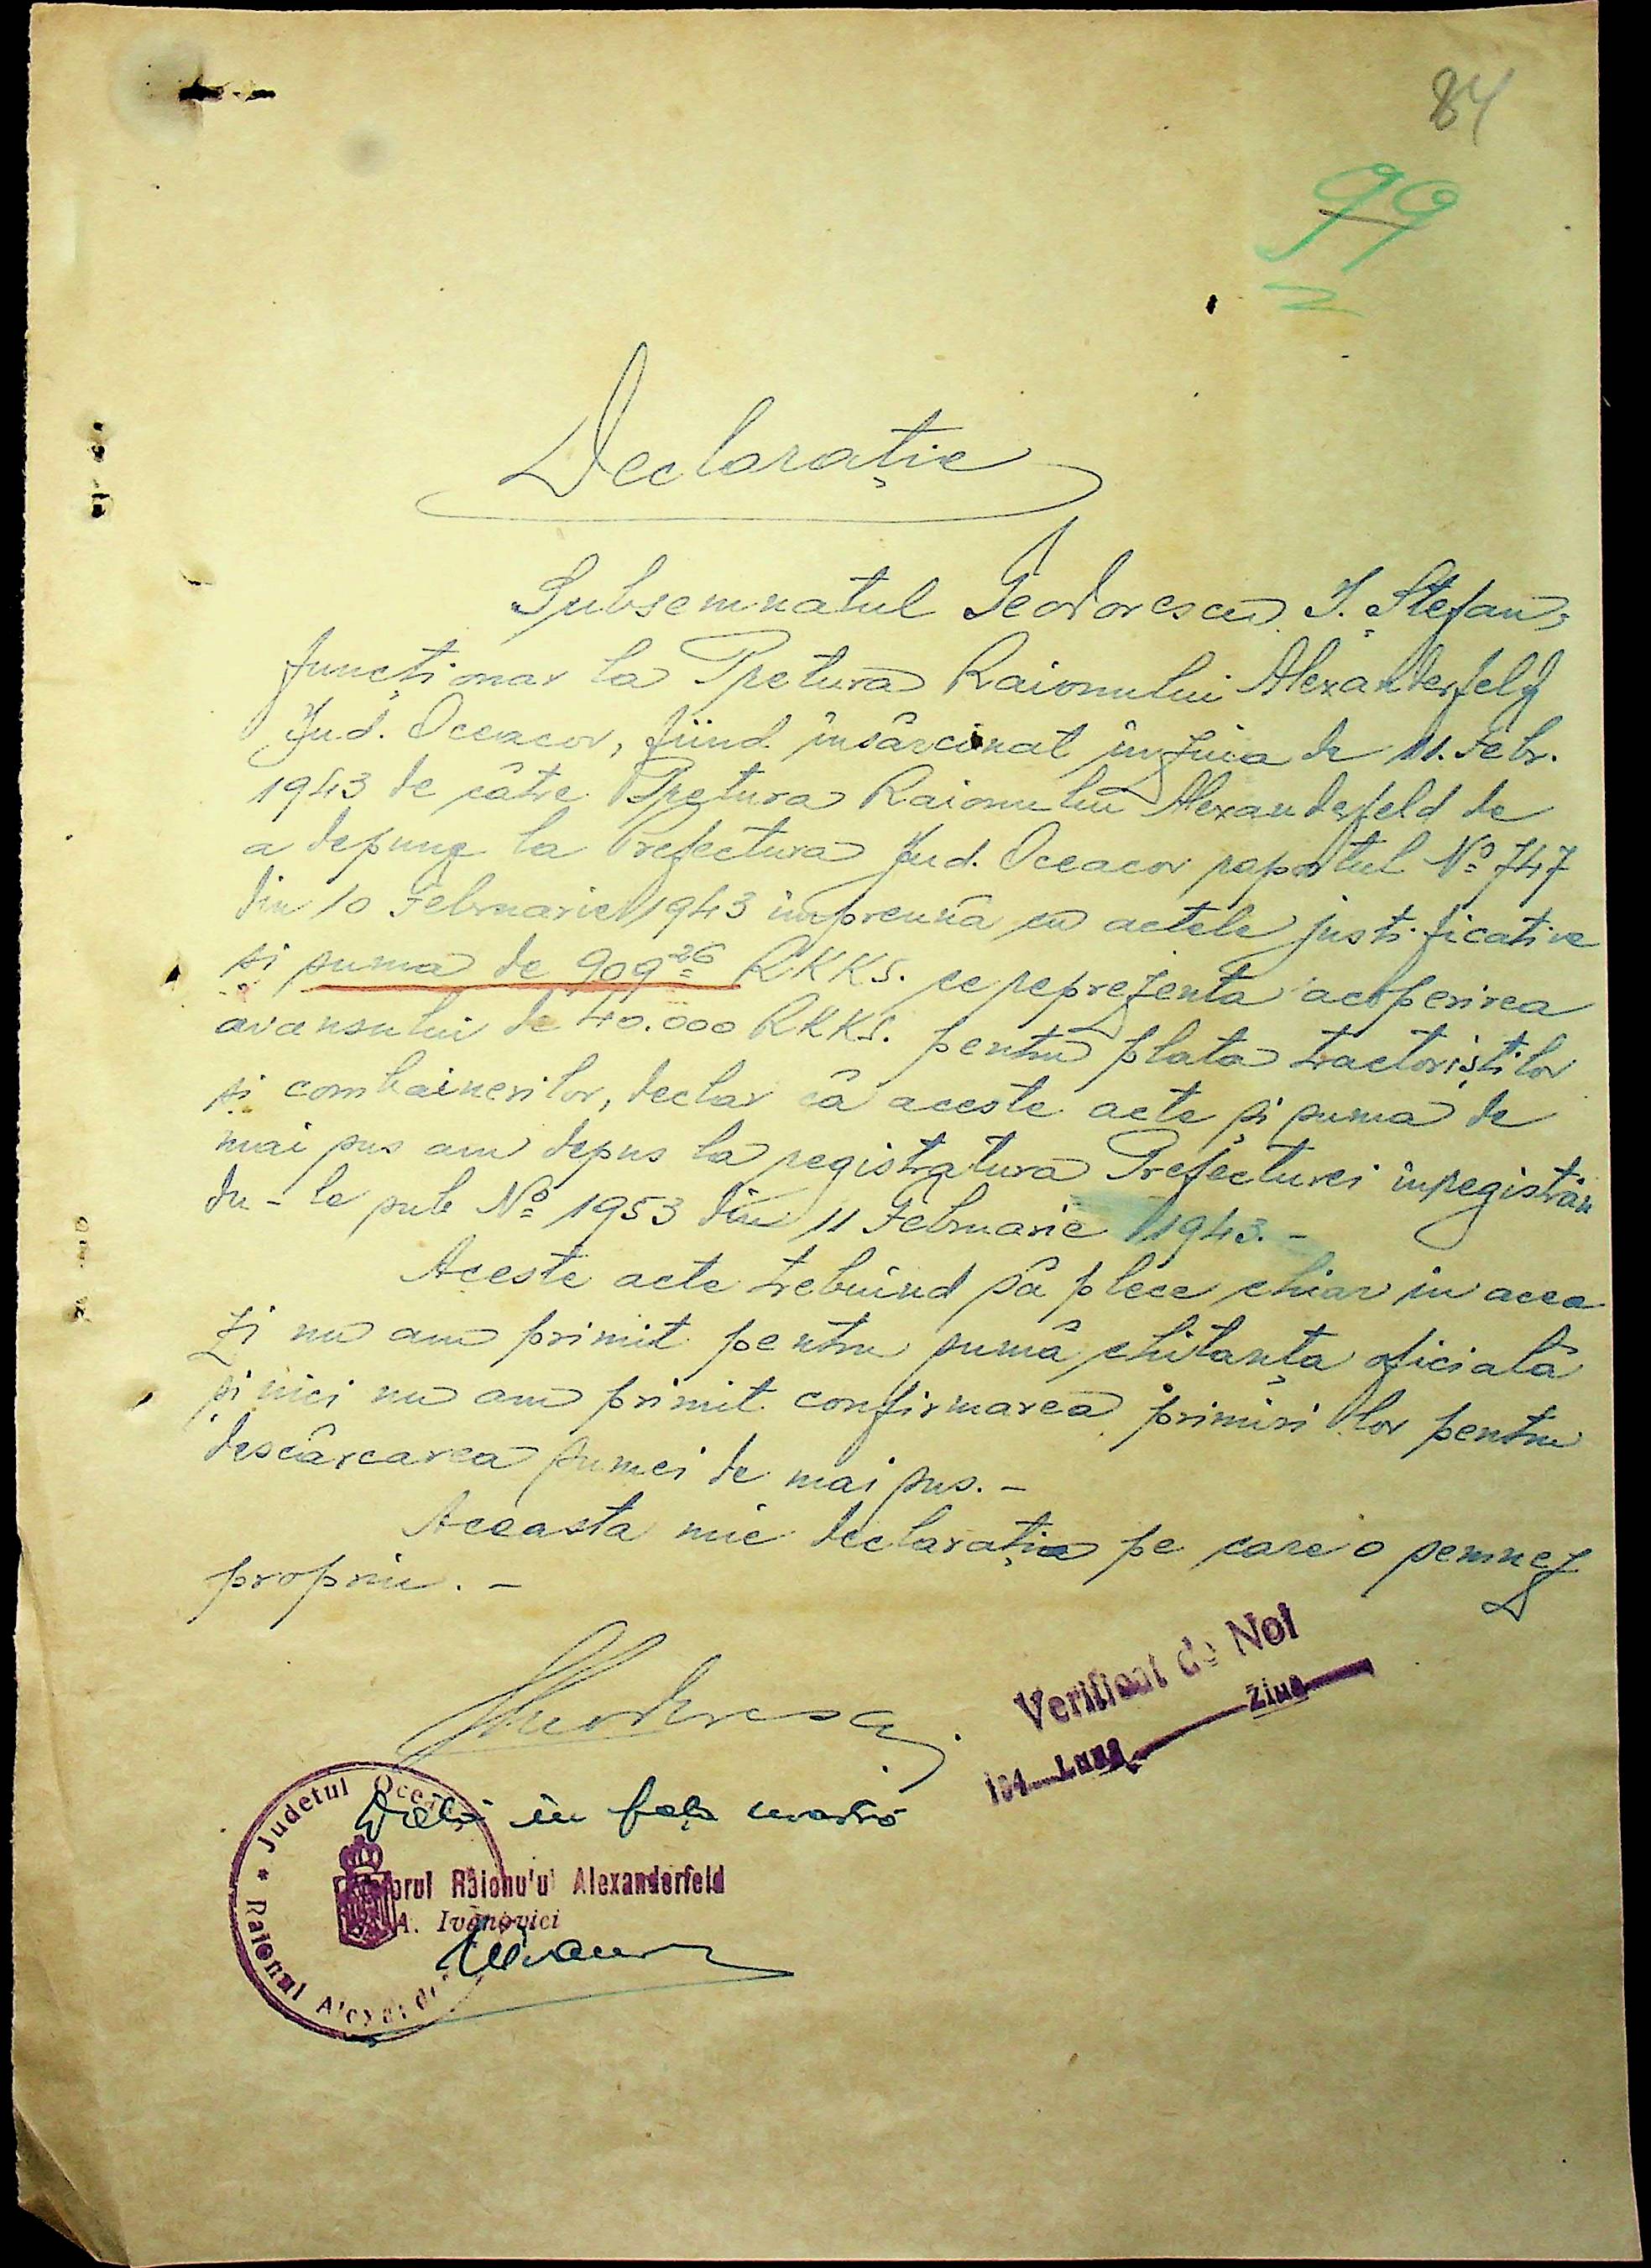 84
99
Declarație
Subsemnatul Teodorescu I. Ștefan,
funcționar la Pretura Raionului Alexanderfeld
Jud. Oceacov, fiind însărcinat în ziua de 11. Febr.
1943 de către Pretura Raionului Alexanderfeld de
a depune la Prefectura Jud. Oceacov raportul No 747
din 10 Februarie 1943 împreună cu actele justificative
și suma de 909 26 RKKS. ce reprezenta acoperirea
avansului de 40.000 RKKS. pentru plata tractoriștilor
și combainerilor, declar că aceste acte și suma de
mai sus am depus la registratura Prefecturei inregistrân
du-le sub No 1953 din 11 Februarie 1943. -
Aceste acte trebuind să plece chiar in acea
zi nu am primit pentru sumă chitanța oficială
și nici nu am primit confirmarea primirilor pentru
descărcarea sumei de mai sus. -
Aceasta mie declarația pe care o semnez
propriu. -
Verificat de Noi
194 Luna Ziua
Dată în fața noastră
Județul Oceacov
orul Raionului Alexanderfeld
A. Ivanovici
Raionul